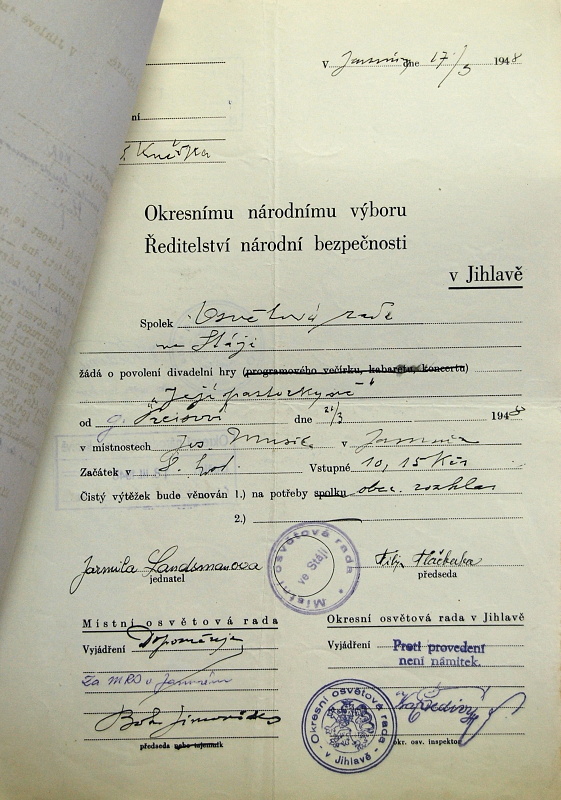 V Jamném dne 17/3 1948
ní
Okresnímu národnímu výboru
Ředitelství národní bezpečnosti
v Jihlavě
Spolek Osvětová rada
ve Stáji
žádá o povolení divadelní hry (programového večírku, kabaretu, koncertu)
„Její pastorkyně"
od g. Preisové dne 21/3 1948
v místnostech Jos. Musila v Jamném
Začátek v 8. hod. Vstupné 10, 15 Kčs
Čistý výtěžek bude věnován 1.) na potřeby spolku obec. rozhlas
2.)
Jarmila Landsmanova
jednatel
Místní osvětová rada
ve Stáji
Filip
předseda
Místní osvětová rada
Vyjádření Doporučuje
Za MRO v Jamném
předseda nebo tajemník
Okresní osvětová rada v Jihlavě
Vyjádření Proti provedení
není námitek.
Okresní osvětová rada
- v Jihlavě -
okr. osv. inspektor